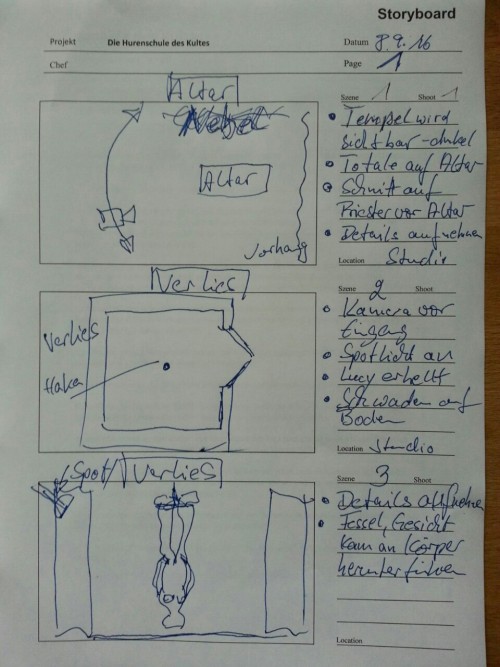 Storyboard
Projekt Die Hurenschule des Kultes Datum 8.9.16
Chef Page 1
Altar
Szene 1 Shoot 1
Altar
Vorhang
Tempel wird
sichtbar - dunkel
Totale auf Altar
Schnitt auf
Priester vor Altar
Details aufnehmen
Location Studio
Verlies
Verlies
Haken
Szene 2 Shoot
Kamera vor
Eingang
Spotlicht an
Lucy erhellt
Schwaden auf
Boden
Location Studio
Spot/Verlies
Szene 3 Shoot
Details aufnehmen
Fessel, Gesicht
Kam an Körper
herunter führen
Location